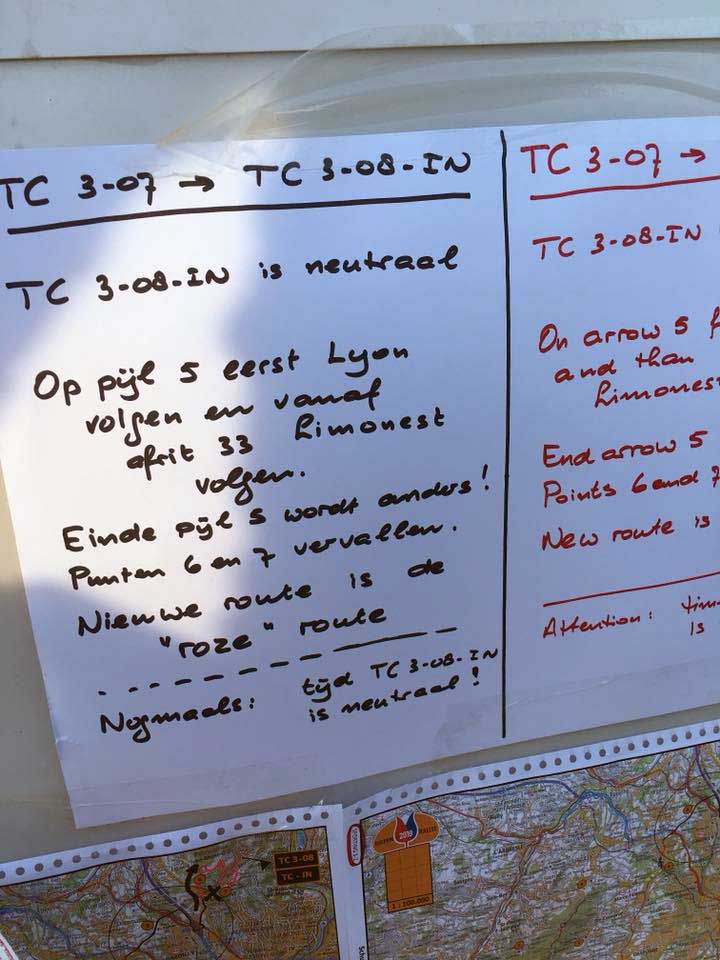 TC 3-07 → TC 3-08-IN
TC 3-08-IN is neutraal
Op pijl 5 eerst Lyon
volgen en vanaf
afrit 33 Limonest
volgen.
Einde pijl 5 wordt anders!
Punten 6 en 7 vervallen.
Nieuwe route is de
"roze" route
Nogmaals: tijd TC 3-08-IN
is neutraal!
TC 3-07 →
TC 3-08-IN
On arrow 5
and than
Limonest
End arrow 5
Points 6 and 7
New route is
Attention:
is
TC 3-08
TC - IN
2018
RALLYE
1 : 100.000